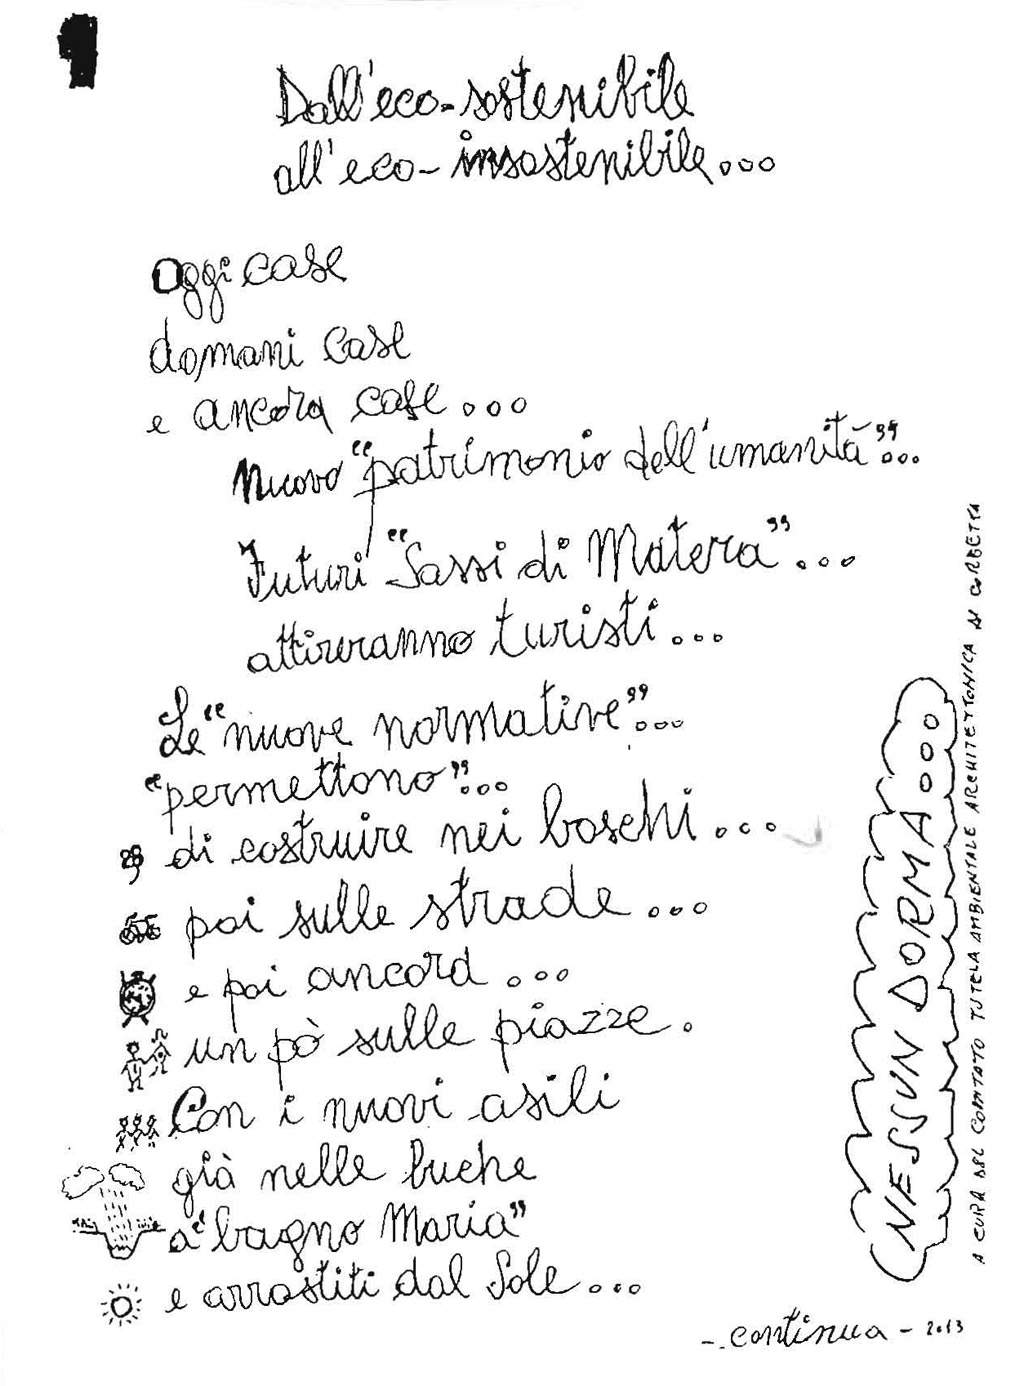 1
Dall'eco-sostenibile
all'eco-insostenibile...
Oggi case
domani case
e ancora case...
Nuovo "patrimonio dell'umanità"...
Futuri "Sassi di Matera"...
attireranno turisti...
Le "nuove normative"...
"permettono"...
di costruire nei boschi...
poi sulle strade...
e poi ancora...
un pò sulle piazze.
Con i nuovi asili
già nelle buche
a "bagno Maria"
e arrostiti dal Sole...
-.continua - 2013
NESSUN DORMA...
A CURA DEL COMITATO TUTELA AMBIENTALE ARCHITETTONICA DI CORBETTA